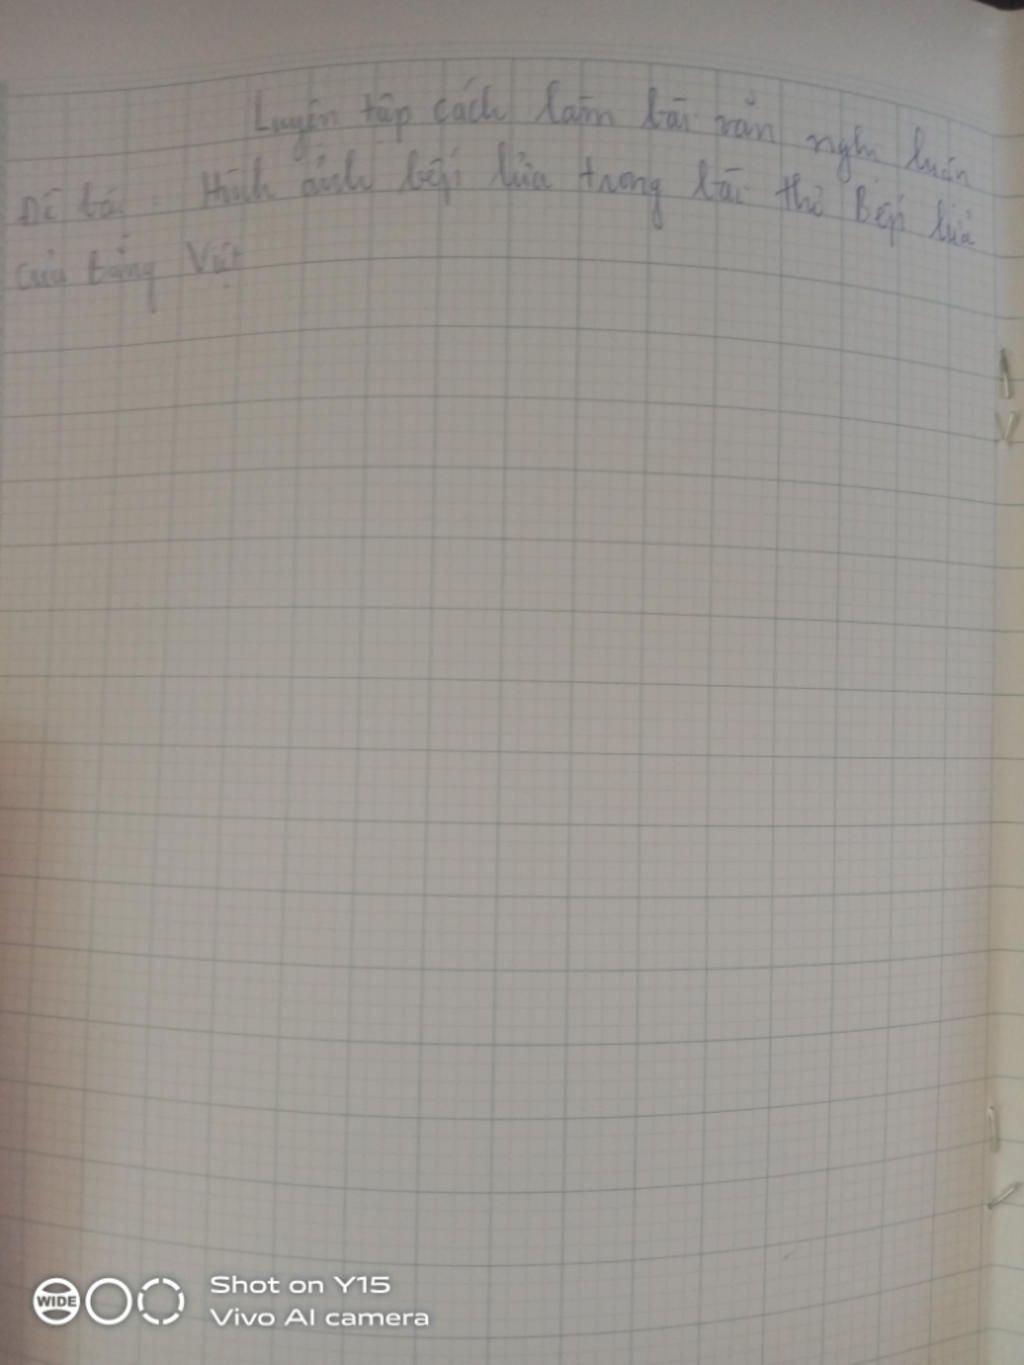 Luyện tập cách làm bài văn nghị luận
Đề bài: Hình ảnh bếp lửa trong bài thơ Bếp lửa
của Bằng Việt
WIDE
Shot on Y15
Vivo AI camera